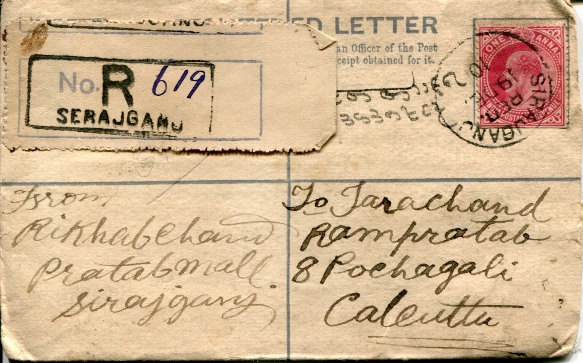 TERED LETTER
an Officer of the Post
ceipt obtained for it.
ONE ANNA
No. R 619
SERAJGANJ
SIRAJGANJ
From
Rikhabchand
Pratabmall
Sirajganj
To Tarachand
Rampratab
8 Pochagali
Calcutta